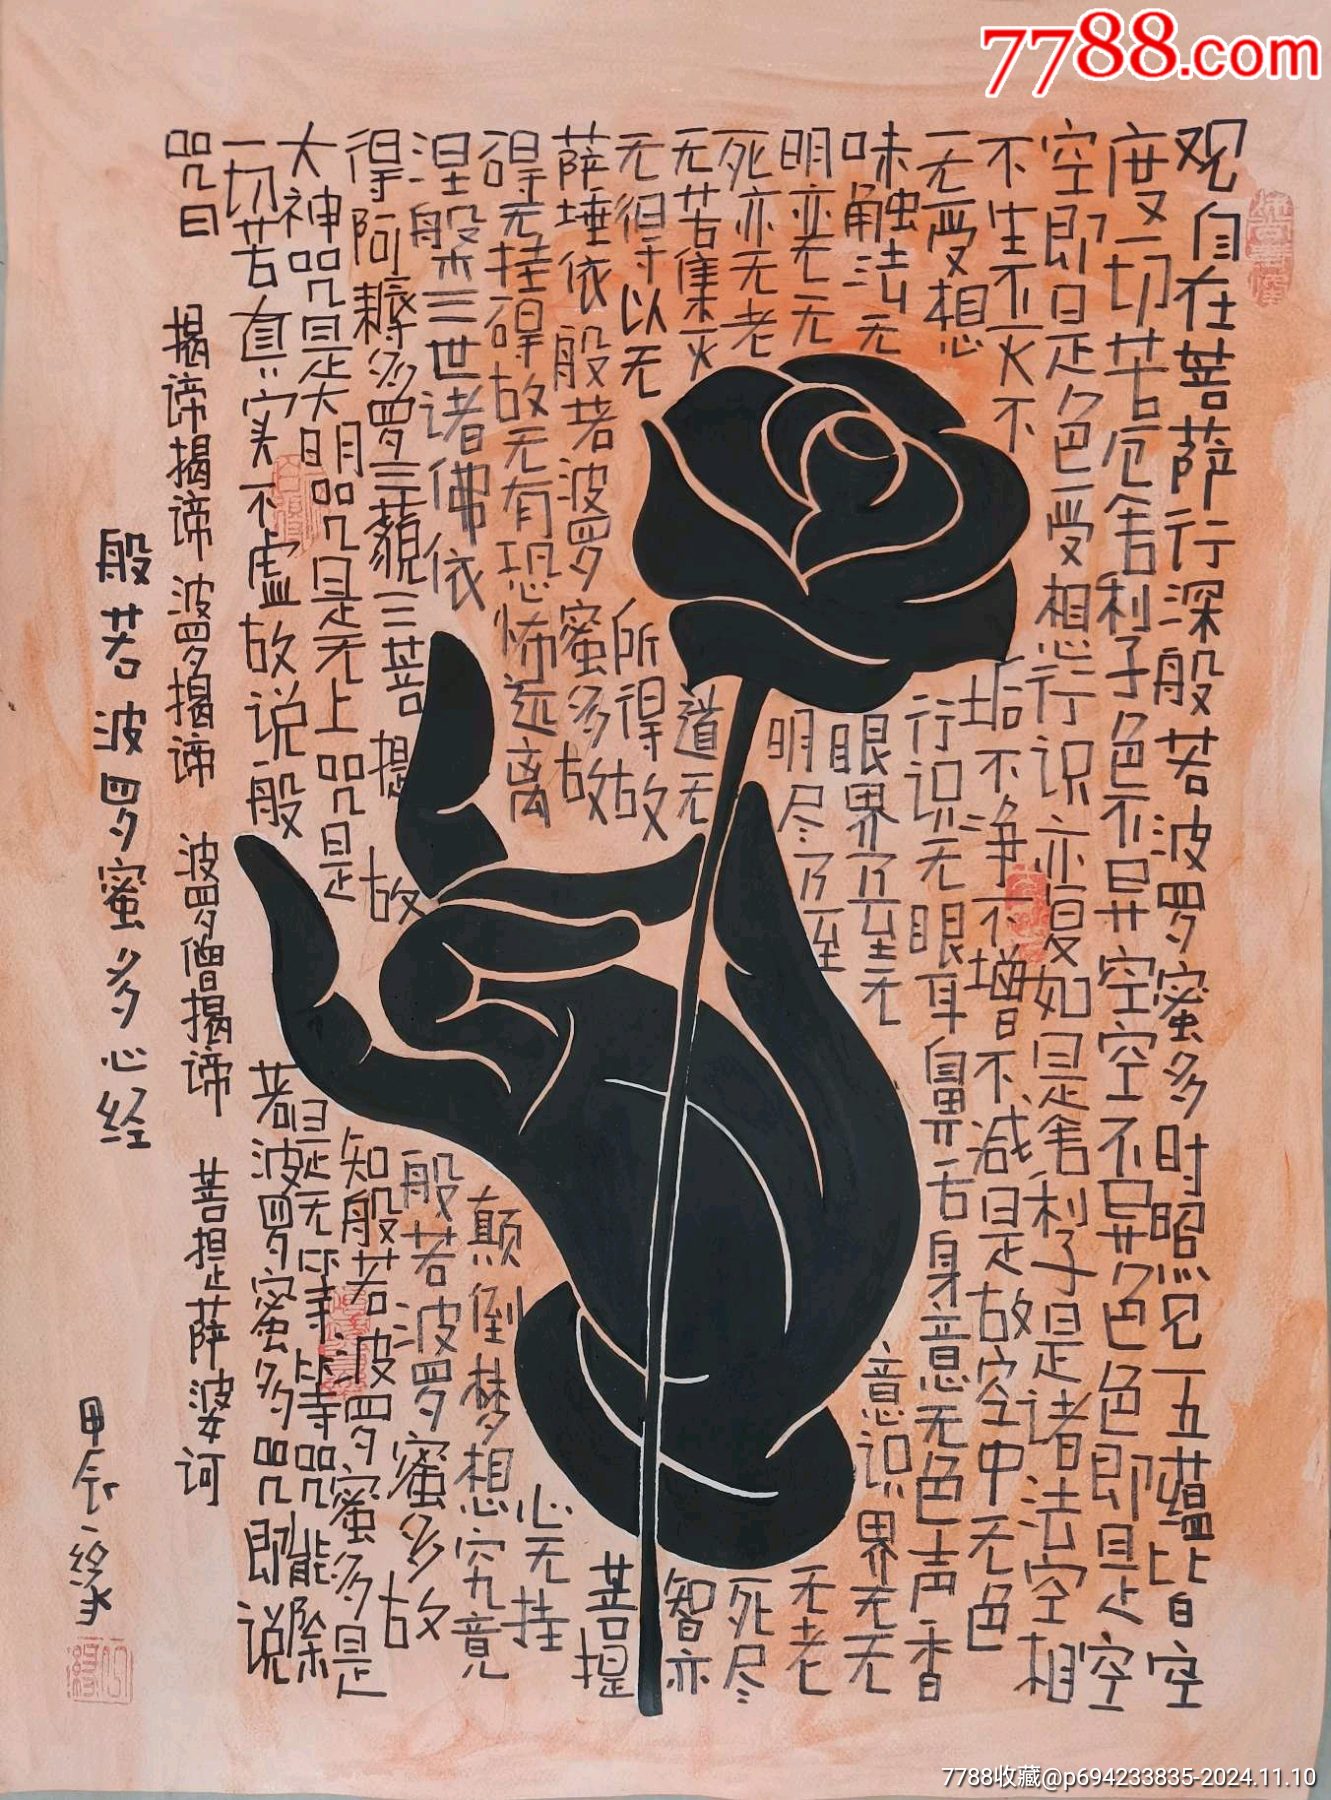 7788.com
观自在菩萨行深般若波罗蜜多时照见五蕴皆空
度一切苦厄舍利子色不异空空不异色色即是空
空即是色受想行识亦复如是舍利子是诸法空相
不生不灭不垢不净不增不减是故空中无色
无受想行识无眼耳鼻舌身意无色声香
味触法无眼界乃至无意识界无无
明亦无无明尽乃至无老
死亦无老死尽
无苦集灭道无智亦
无得以无所得故菩提
萨埵依般若波罗蜜多故心无挂
碍无挂碍故无有恐怖远离颠倒梦想究竟
涅槃三世诸佛依般若波罗蜜多故
得阿耨多罗三藐三菩提故知般若波罗蜜多是
大神咒是大明咒是无上咒是是无等等咒能除
一切苦真实不虚故说般若波罗蜜多咒即说
咒曰 揭谛揭谛 波罗揭谛 波罗僧揭谛 菩提萨婆诃
般若波罗蜜多心经
甲辰 缘
7788收藏@p694233835-2024.11.10